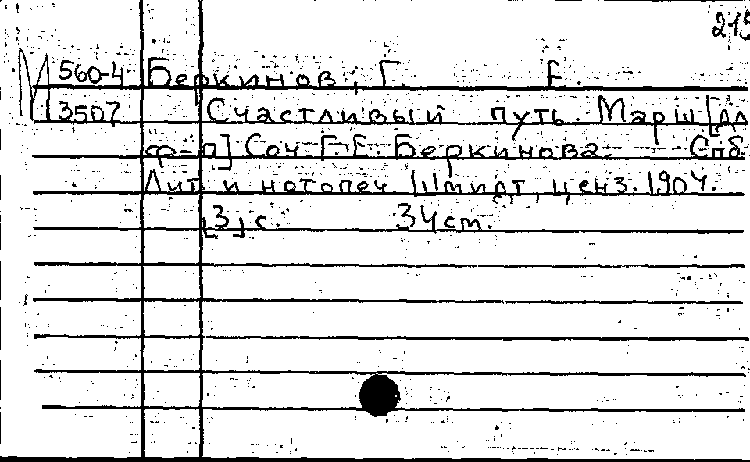 215
М 560-4 Беркинов, Г. Е.
13507 Счастливый путь. Марш [дл
ф-п] Соч. Г. Е. Беркинова. Спб.
Лит. и нотопеч. Шмидт, ценз. 1904.
[3] с. 34 см.